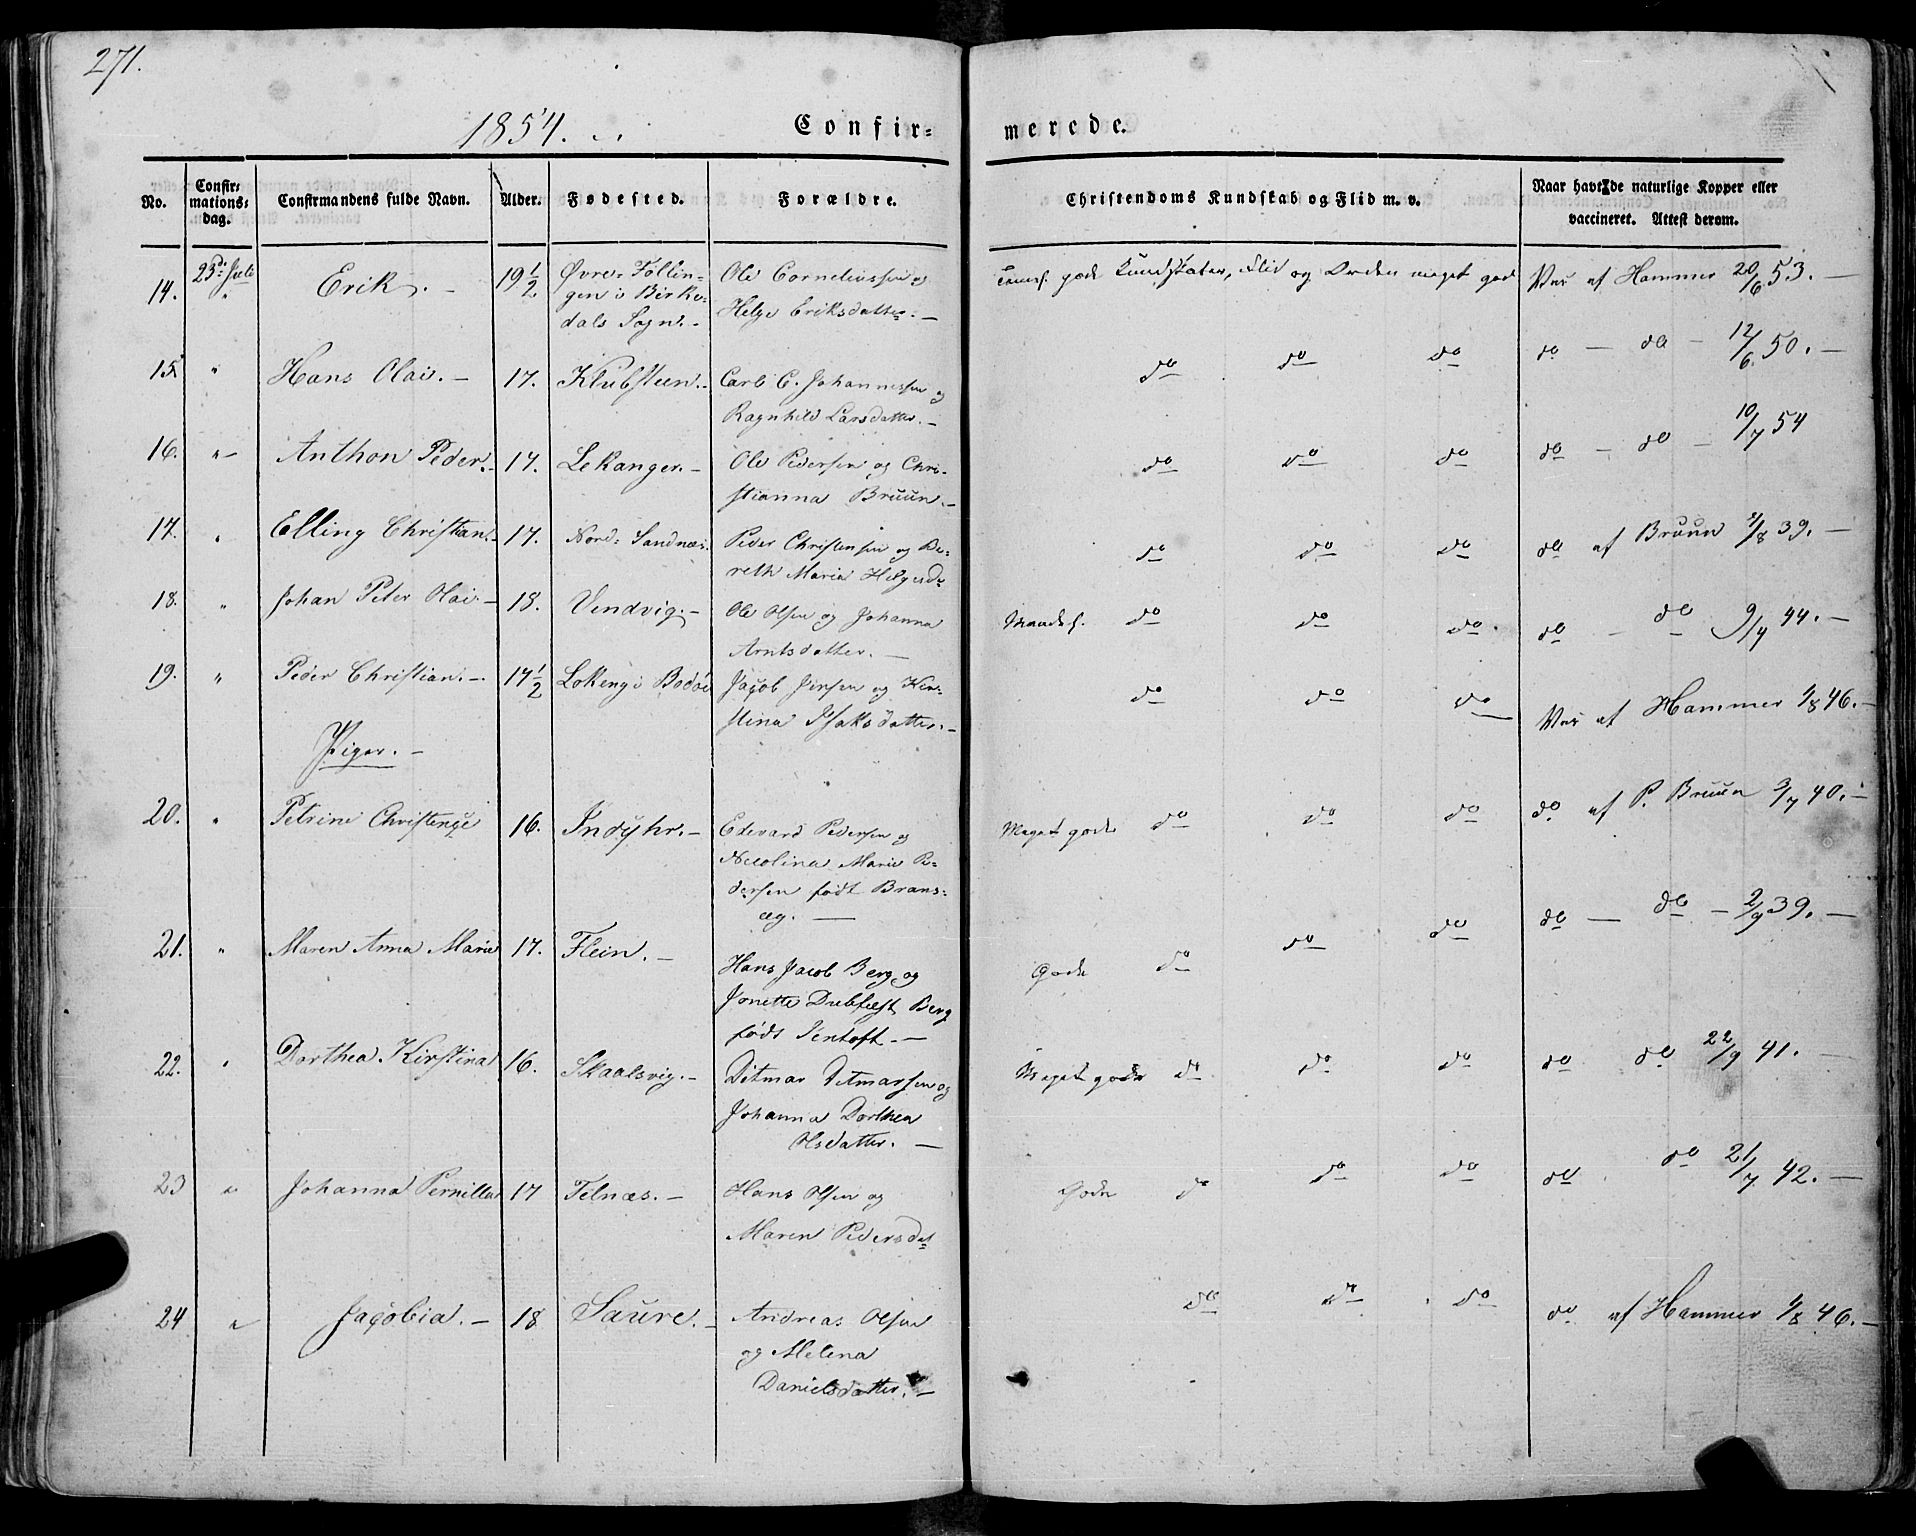 271.
1854.
Confir-
merede.
No.
Confir-
mations-
dag.
Confirmandens fulde Navn.
Alder.
Fødested.
Forældre.
Christendoms Kundskab og Flid m. v.
Naar havt de naturlige Kopper eller
vaccineret. Attest derom.
14. 23di Juli Erik. - 19 1/2 Øvre Föllin-
gen i Birke-
dals Sogn. -
Ole Corneliussen og
Helge Eriksdatter. -
gode Kundskaber, Flid og Orden meget god
Vac af Hammer 20/6 53. -
15 " Hans Olai. - 17. Klubsteen. -
Carl C. Johannessen og
Ragnhild Larsdatter. -
do do do
do - do - 12/6 50. -
16. " Anthon Peder. - 17. Lekanger. -
Ole Pedersen og Chri-
stianna Bruun. -
do do do
do - do - 10/7 54
17. " Elling Christian. - 17. Nord-Sandnæs.
Peder Christensen og Be-
reth Maria Helgesdr
do do do
do af Bruun /8 39. -
18. " Johan Peter Olai - 18. Vendvig. -
Ole Olsen og Johanna
Arntsdatter. -
Maadel. do do do
do - do 9/9 44. -
19. " Peder Christian. - 14 1/2 Lokeng i Bodøe
Jacob Jensen og Ker-
stina Isaksdatter. -
do do do
Vac af Hammer 1/8 46. -
Piger. -
20. " Petrine Christense 16. Indyhr. -
Edevard Pedersen og
Nicolina Marie Pe-
dersen født Brans-
æg. -
Meget gode do do do
do af P. Bruun 3/7 40. -
21. " Maren Anna Marie 17. Flein. -
Hans Jacob Berg og
Jonette Dubfæst Berg
født Jentoft -
Gode do do do
do - do - 2/9 39. -
22. " Dorthea Kirstina 16. Skaalsvig. -
Ditmar Ditmarsen og
Johanna Dorthea
Olsdatter. -
Meget gode do do do
do do 22/9 41. -
23 " Johanna Pernilla 17 Telnæs. -
Hans Olsen og
Maren Pedersdat
Gode do do do
do do 21/7 42. -
24 " Jacobia. - 18 Saure. -
Andreas Olsen
og Melena
Danielsdatter. -
do do do
do af Hammer 1/8 46. -